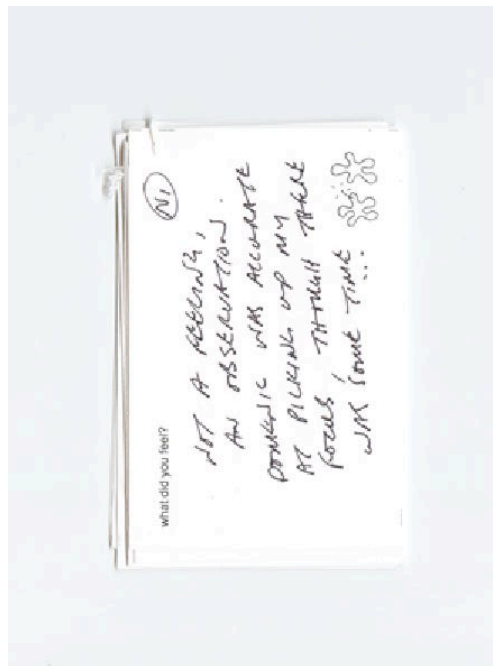 what did you feel?
N1
NOT A FEELING,
AN OBSERVATION.
DOMENIC WAS ACCURATE
AT PICKING UP MY
FOCUS, THOUGH THERE
WAS SOME TIME ...